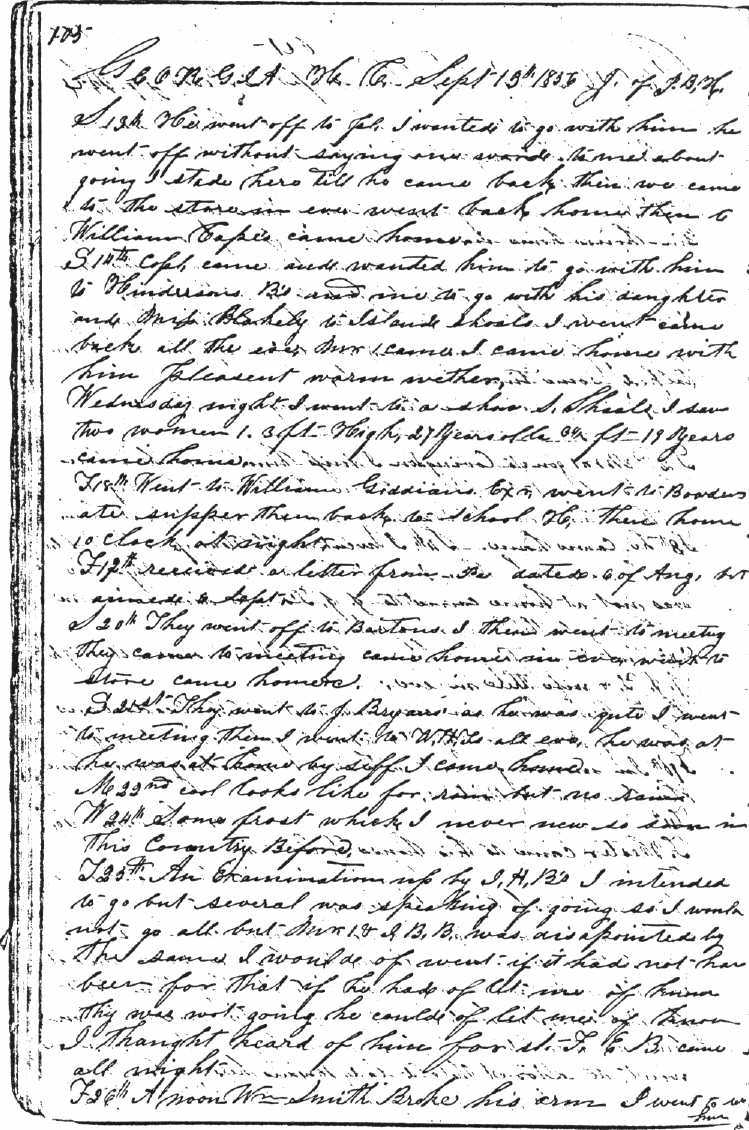 105
GEORGIA H. C. Sept 13th 1856 J. of J.B.H.
S 13th He went off to I wanted to go with him he
went off without saying one word to me about
going I stade here till he came back then we came
to the store in eve went back home then to
William came home
S 14th Capt. came and wanted him to go with him
to Hindersons B and me to go with his daughter
and Miss Blakely to Island shoals I went came
back all the eve, Mr 1 came I came home with
him pleasent warm wether,
Wednesday night I went to a show S. Shoals I saw
two women 1. 3 ft High, 27 Years old 3 ft 19 Years
came home
T 18th Went to William Giddians Ex, went to Bowders
ate supper then back to School H, then home
10 Clock at night
F 19th received a letter from dated 6 of Aug,
Sept
S 20th They went off to Bartons I then went to meeting
they came to meeting came home in eve went to
store came home &c.
S 21st Thy went to J. Bryans as he was qute I went
to meeting then I went to W.H.Ls all eve, he was at
he was at home by self I came home
M 22nd cool looks like for rain but no rain
W 24th Some frost which I never new so soon in
this Country Before,
T 25th An Examination up by J, H, Bs I intended
to go but several was speaking of going so I would
not go all but Mr 1 & J. B. B. was disapointed by
the same I woulde of went if it had not har
been for that if he had of let me of know
thy was not going he coulde of let me of know
I thought heard of him for st. T. E. B. came
all night
F 26th A noon Wm Smith Broke his arm I went to
him